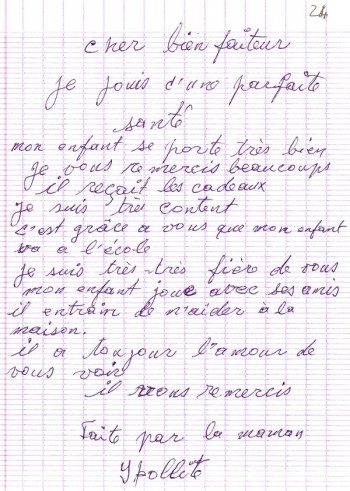 24
cher bienfaiteur
je jouis d'une parfaite
santé
mon enfant se porte très bien
je vous remercis beaucoups
il reçait les cadeaux
je suis très content
c'est grâce a vous que mon enfant
va a l'école
je suis très-très fière de vous
mon enfant joue avec ses amis
il entrain de m'aider à la
maison.
il a toujour l'amour de
vous voir
il vous remercis
Faite par la maman
Ypollite